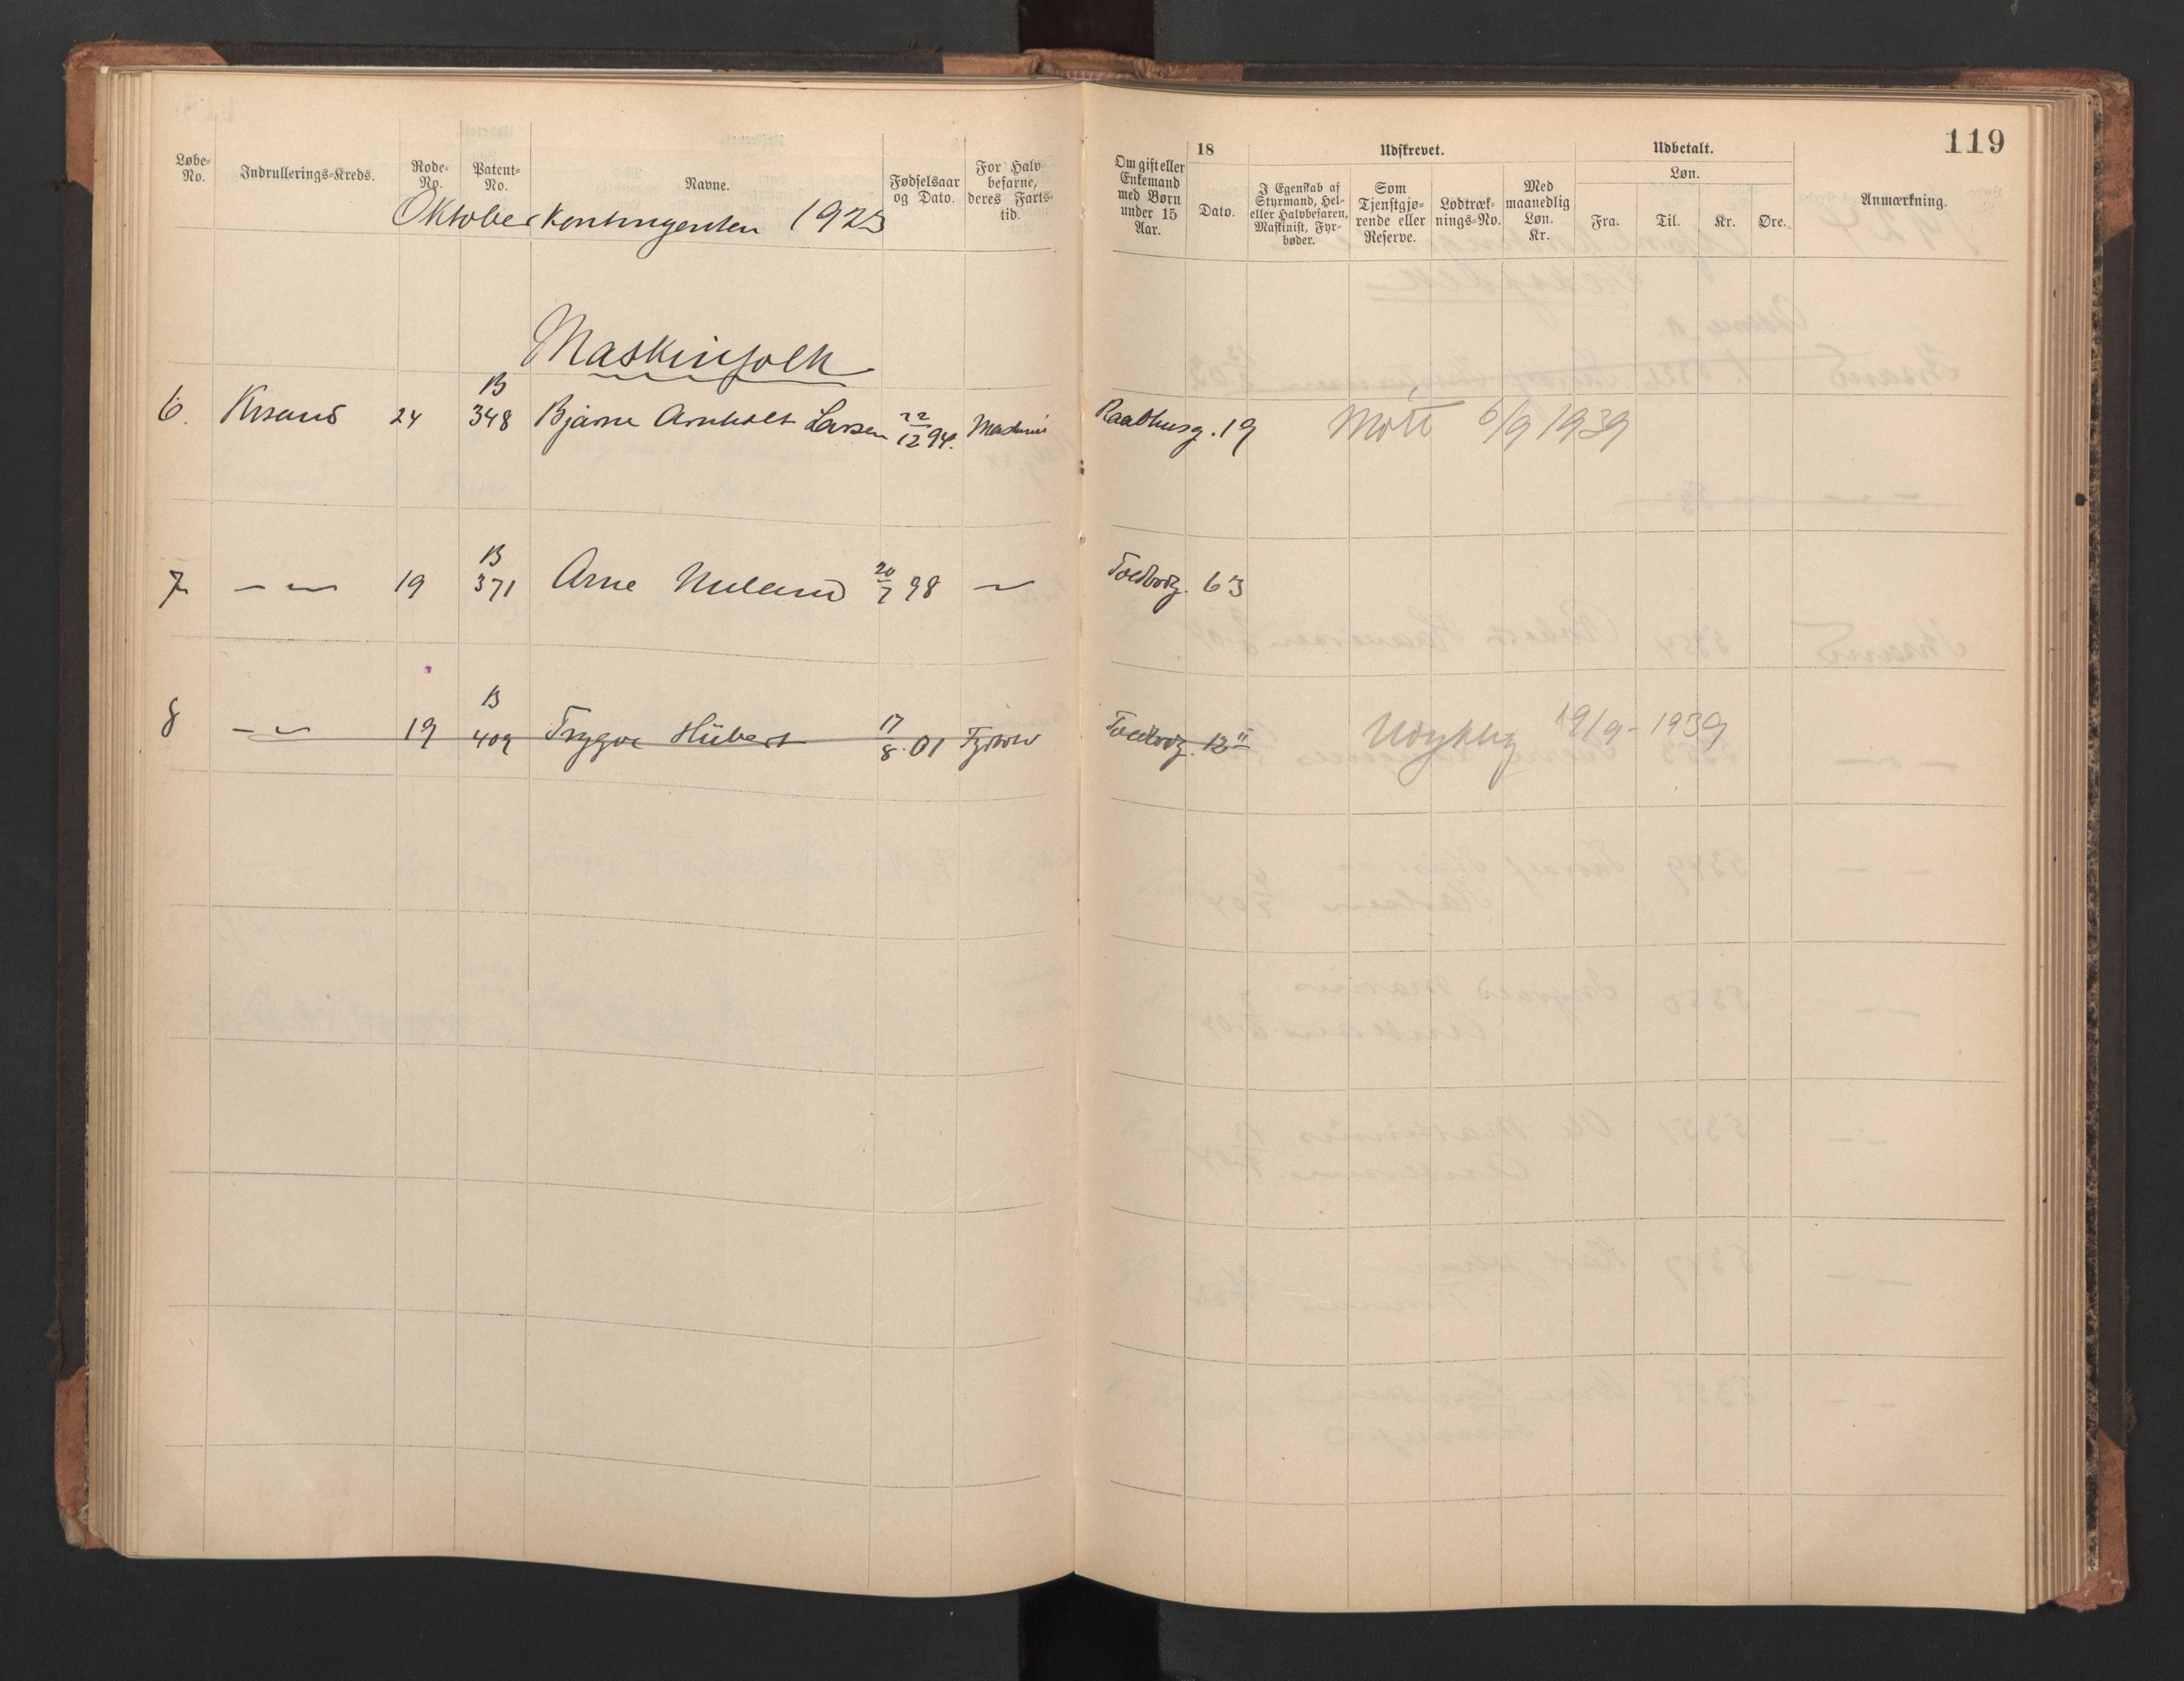 119
Løbe-No. Indrullerings-Kreds. Rode-No. Patent-No. Navne. Fødselsaar og Dato. For Halvbefarne, deres Farts-tid.
Om gift eller Enkemand med Børn under 15 Aar. 18 Dato. Udskrevet. I Egenskab af Styrmand, Hel- eller Halvbefaren, Maskinist, Fyr-bøder. Som Tjenstgjø-rende eller Reserve. Lodtræk-nings-No. Med maanedlig Løn. Kr. Udbetalt. Løn. Fra. Til. Kr. Øre. Anmærkning.
Oktober Kontingenten 1923
Maskinfolk
6. Krsand 24 B 348 Bjarne Arnholt Larsen 22/12 94. Maskinist Raadhusg. 19 Møtt 6/9 1939
7 — " — 19 B 371 Arne Nuland 20/7 98 — Toldbodg. 63
8 — " — 19 B 409 Trygve Hübert 17/8. 01 Fyrbøder Toldbodg. 12 II 19/9 - 1939